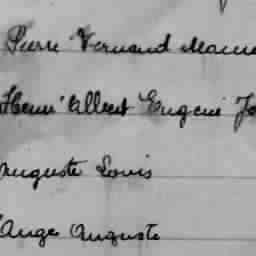 Pierre Fernand Mauri
Henri Albert Eugène Jo
Auguste Louis
Ange Auguste